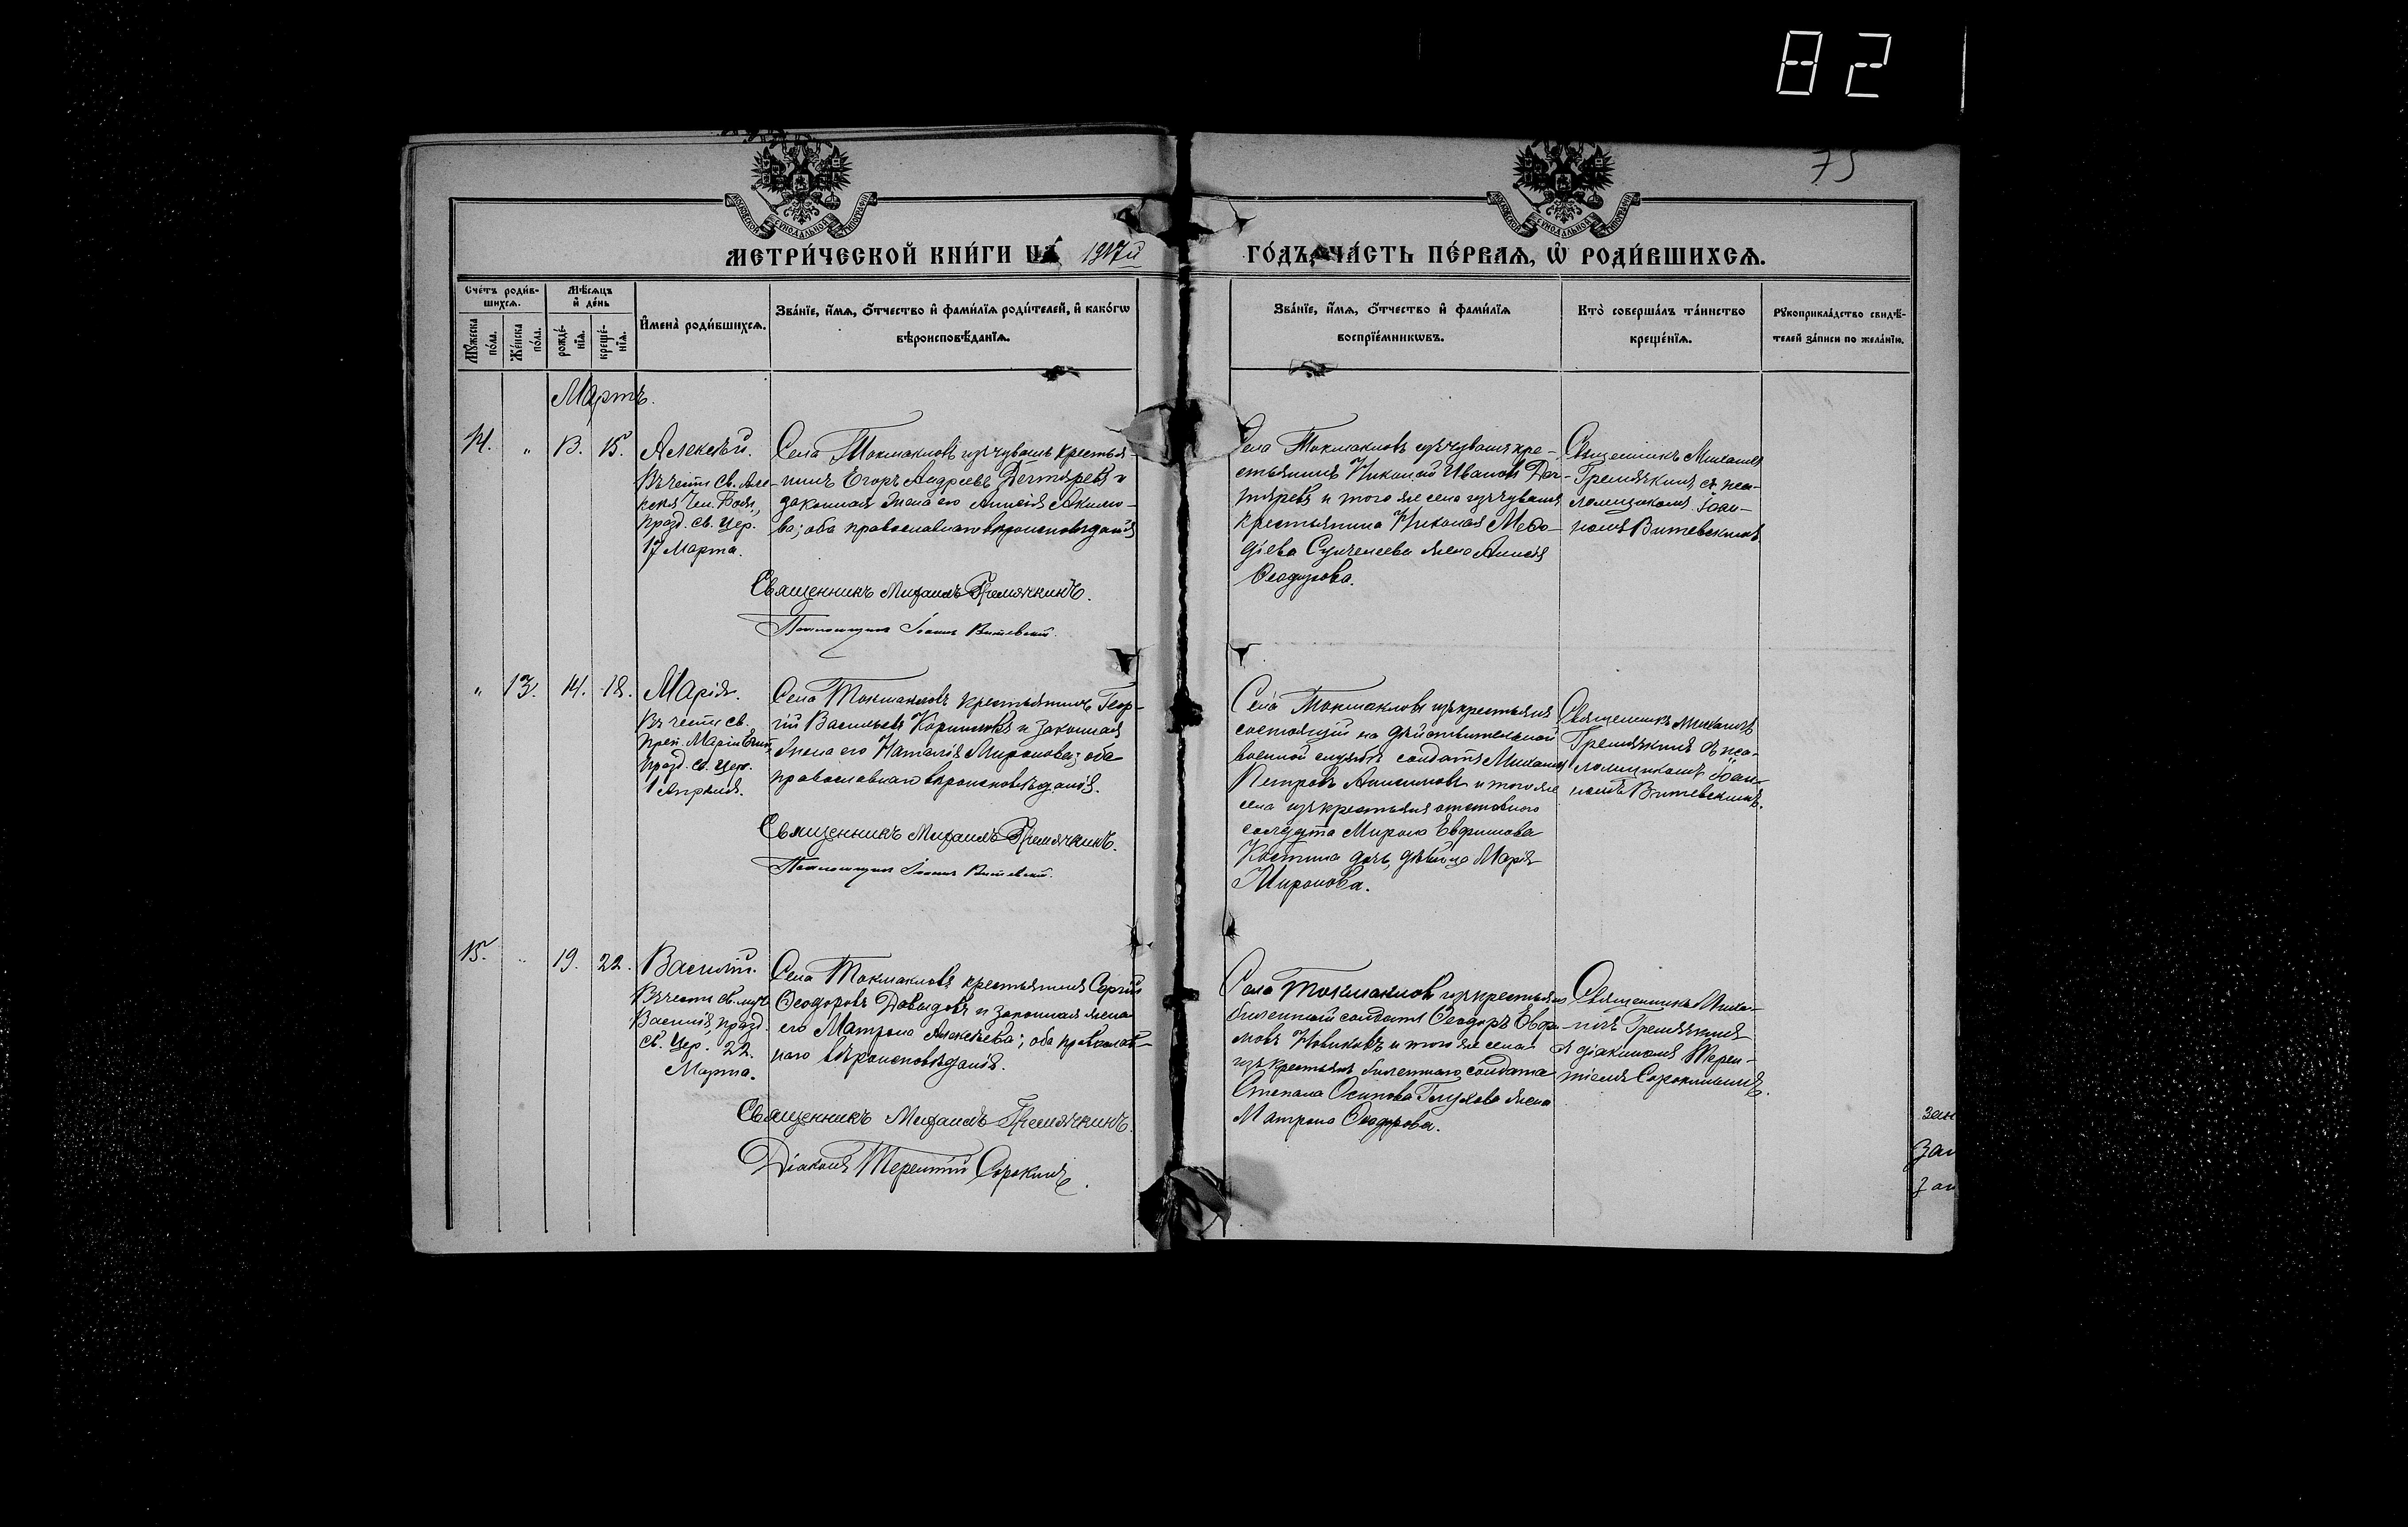 82
75
МОСКОВСКОЙ СѴНОДАЛЬНОЙ ТИПОГРАФІИ
МОСКОВСКОЙ СѴНОДАЛЬНОЙ ТИПОГРАФІИ
МЕТРИ́ЧЕСКОЙ КНИ́ГИ НА 1917й
ГО́ДЪ, ЧА́СТЬ ПЕ́РВАЯ, Ѿ РОДИ́ВШИХСЯ.
Сче́тъ роди́в-
шихся.
Мꙋ́жеска
по́ла.
Же́нска
по́ла.
Мѣ́сяцъ
и де́нь
рожде́-
нїя.
креще́-
нїя.
Имена̀ роди́вшихся.
Зва́нїе, и́мя, о́тчество и фами́лїя роди́телей, и како́гѡ
вѣроисповѣ́данїя.
Зва́нїе, и́мя, о́тчество и фами́лїя
воспрїе́мникѡвъ.
Кто̀ соверша́лъ та́инство
креще́нїя.
Рꙋкоприкла́дство свидѣ́-
телей за́писи по жела́нїю.
Мартъ.
14. " 13. 15. Алексѣй.
Въ честь Св. Але-
ксѣя Чел. Божія,
празд. св. Цер.
17 Марта.
Села Токмаклов изъ чувашъ крестья-
нинъ Егоръ Андреевъ Дегтяревъ и
законная жена его Анисія Акимо-
ва; оба православнаго вѣроисповѣданія
Священникъ Михаилъ Гремячкинъ.
Псаломщикъ Іоаннъ Витевскій.
Села Токмаклов изъ чувашъ кре-
стьянинъ Николай Ивановъ Дег-
тяревъ и того же села изъ чувашъ
крестьянина Николая Мефо-
діева Сунчелеева жена Анисія
Ѳеодорова.
Священникъ Михаилъ
Гремячкинъ съ пса-
ломщикомъ Іоан-
номъ Витевскимъ.
" 13. 14. 18. Марія.
Въ честь св.
преп. Маріи Егип.
празд. св. Цер.
1 Апрѣля.
Села Токмаклов крестьянинъ Геор-
гій Васильевъ и законная
жена его Наталія Миронова; оба
православнаго вѣроисповѣданія.
Священникъ Михаилъ Гремячкинъ.
Псаломщикъ Іоаннъ Витевскій.
Села Токмаклов изъ крестьянъ
состоящій на дѣйствительной
военной службѣ солдатъ Михаилъ
Петровъ Анисимовъ и того же
села изъ крестьянъ отставного
солдата Мирона Евфимова
Костина дочь, дѣвица Марія
Миронова.
Священникъ Михаилъ
Гремячкинъ съ пса-
ломщикомъ Іоан-
номъ Витевскимъ.
15. " 19. 22. Василій.
Въ честь св. муч.
Василія, празд.
св. Цер. 22.
Марта.
Села Токмаклов крестьянинъ Сергій
Ѳеодоровъ Давыдовъ и законная жена
его Матрона Алексѣева; оба православ-
наго вѣроисповѣданія.
Священникъ Михаилъ Гремячкинъ.
Діаконъ Терентій Сорокинъ.
Села Токмаклов изъ крестьянъ
билетный солдатъ Ѳеодоръ Евфи-
мовъ Новиковъ и того же села
изъ крестьянъ билетнаго солдата
Степана Осипова Глухова жена
Матрона Ѳеодорова.
Священникъ Миха-
илъ Гремячкинъ
съ діакономъ Терен-
тіемъ Сорокинымъ.
зак
Зак
Зак